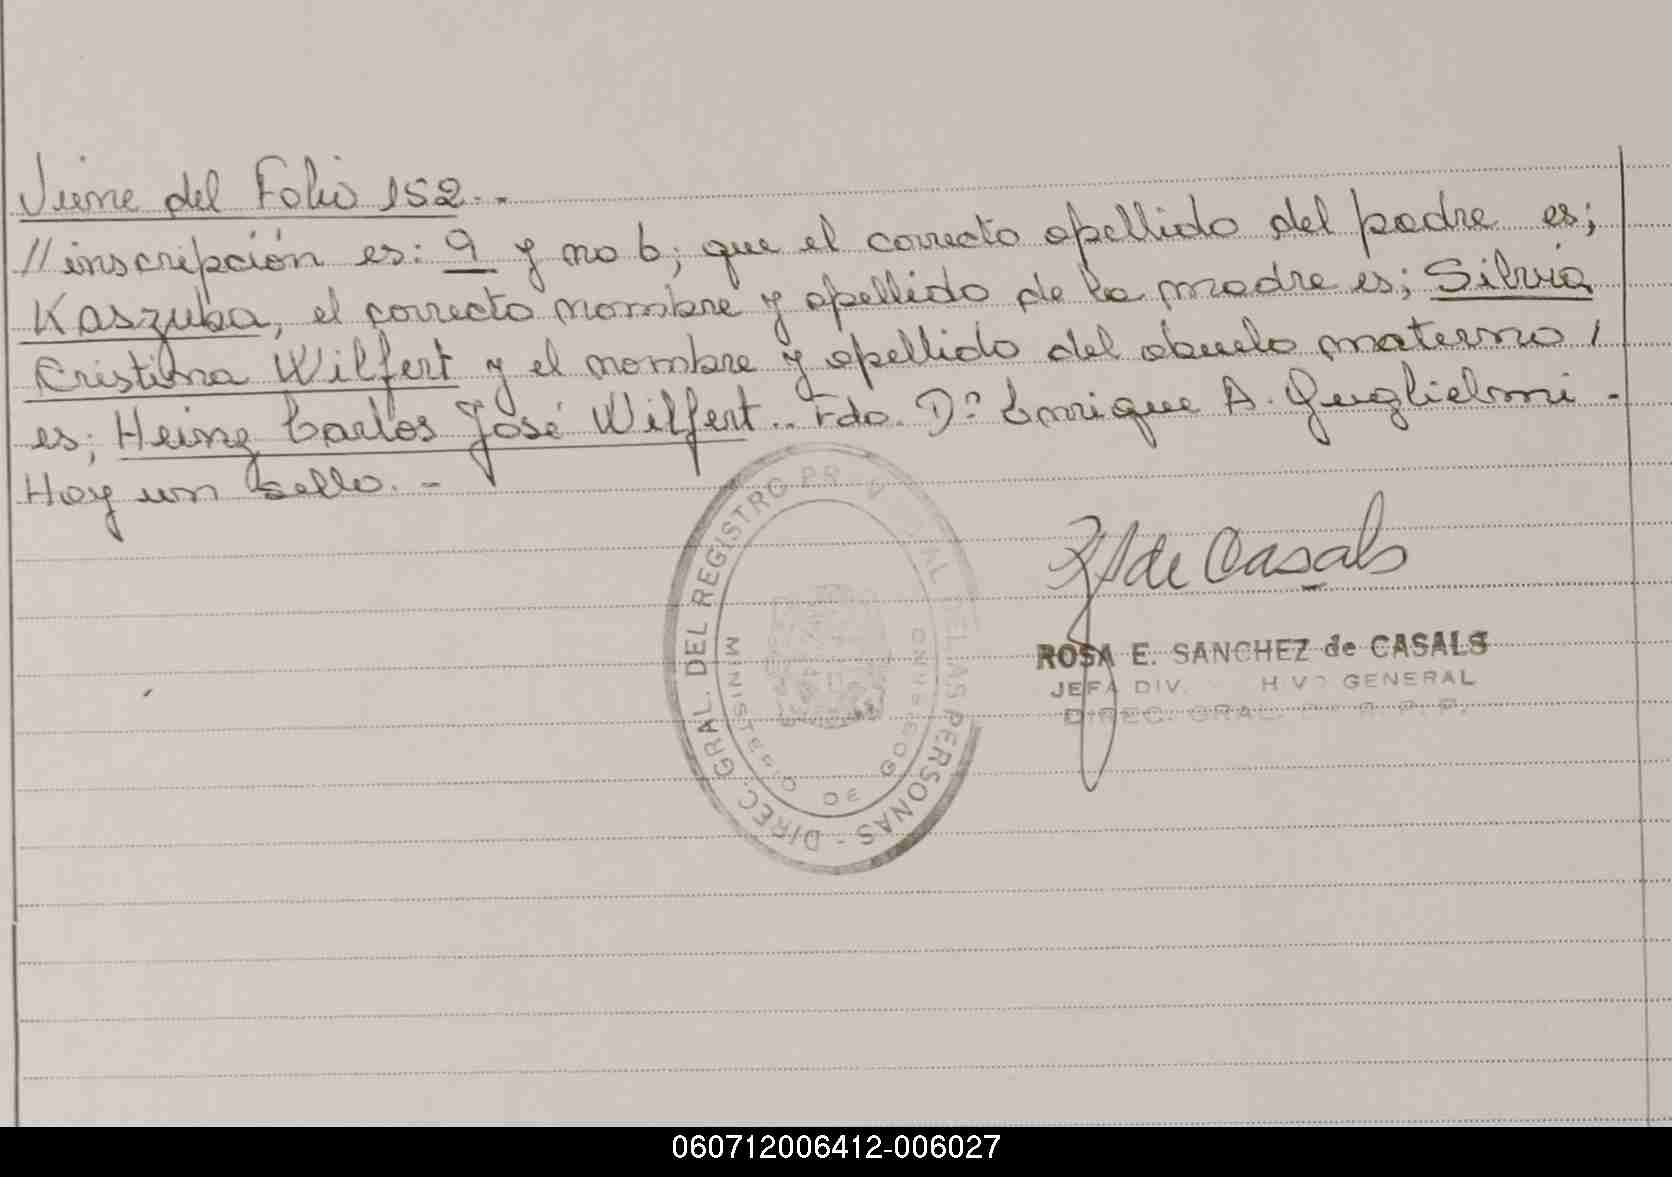 Viene del Folio 152.-
//inscripción es: 9 y no 6; que el correcto apellido del padre es;
Kaszuba, el correcto nombre y apellido de la madre es; Silvia
Cristina Wilfert y el nombre y apellido del abuelo materno /
es; Heinz Carlos José Wilfert.. Fdo. Dº. Enrique A. Guglielmi.-
Hay un sello.-
DIREC. GRAL. DEL REGISTRO DE LAS PERSONAS -
MINISTERIO DE GOBIERNO
R S de Casals
ROSA E. SANCHEZ de CASALS
JEFA DIV. GENERAL
DIREC. GRAL.
060712006412-006027